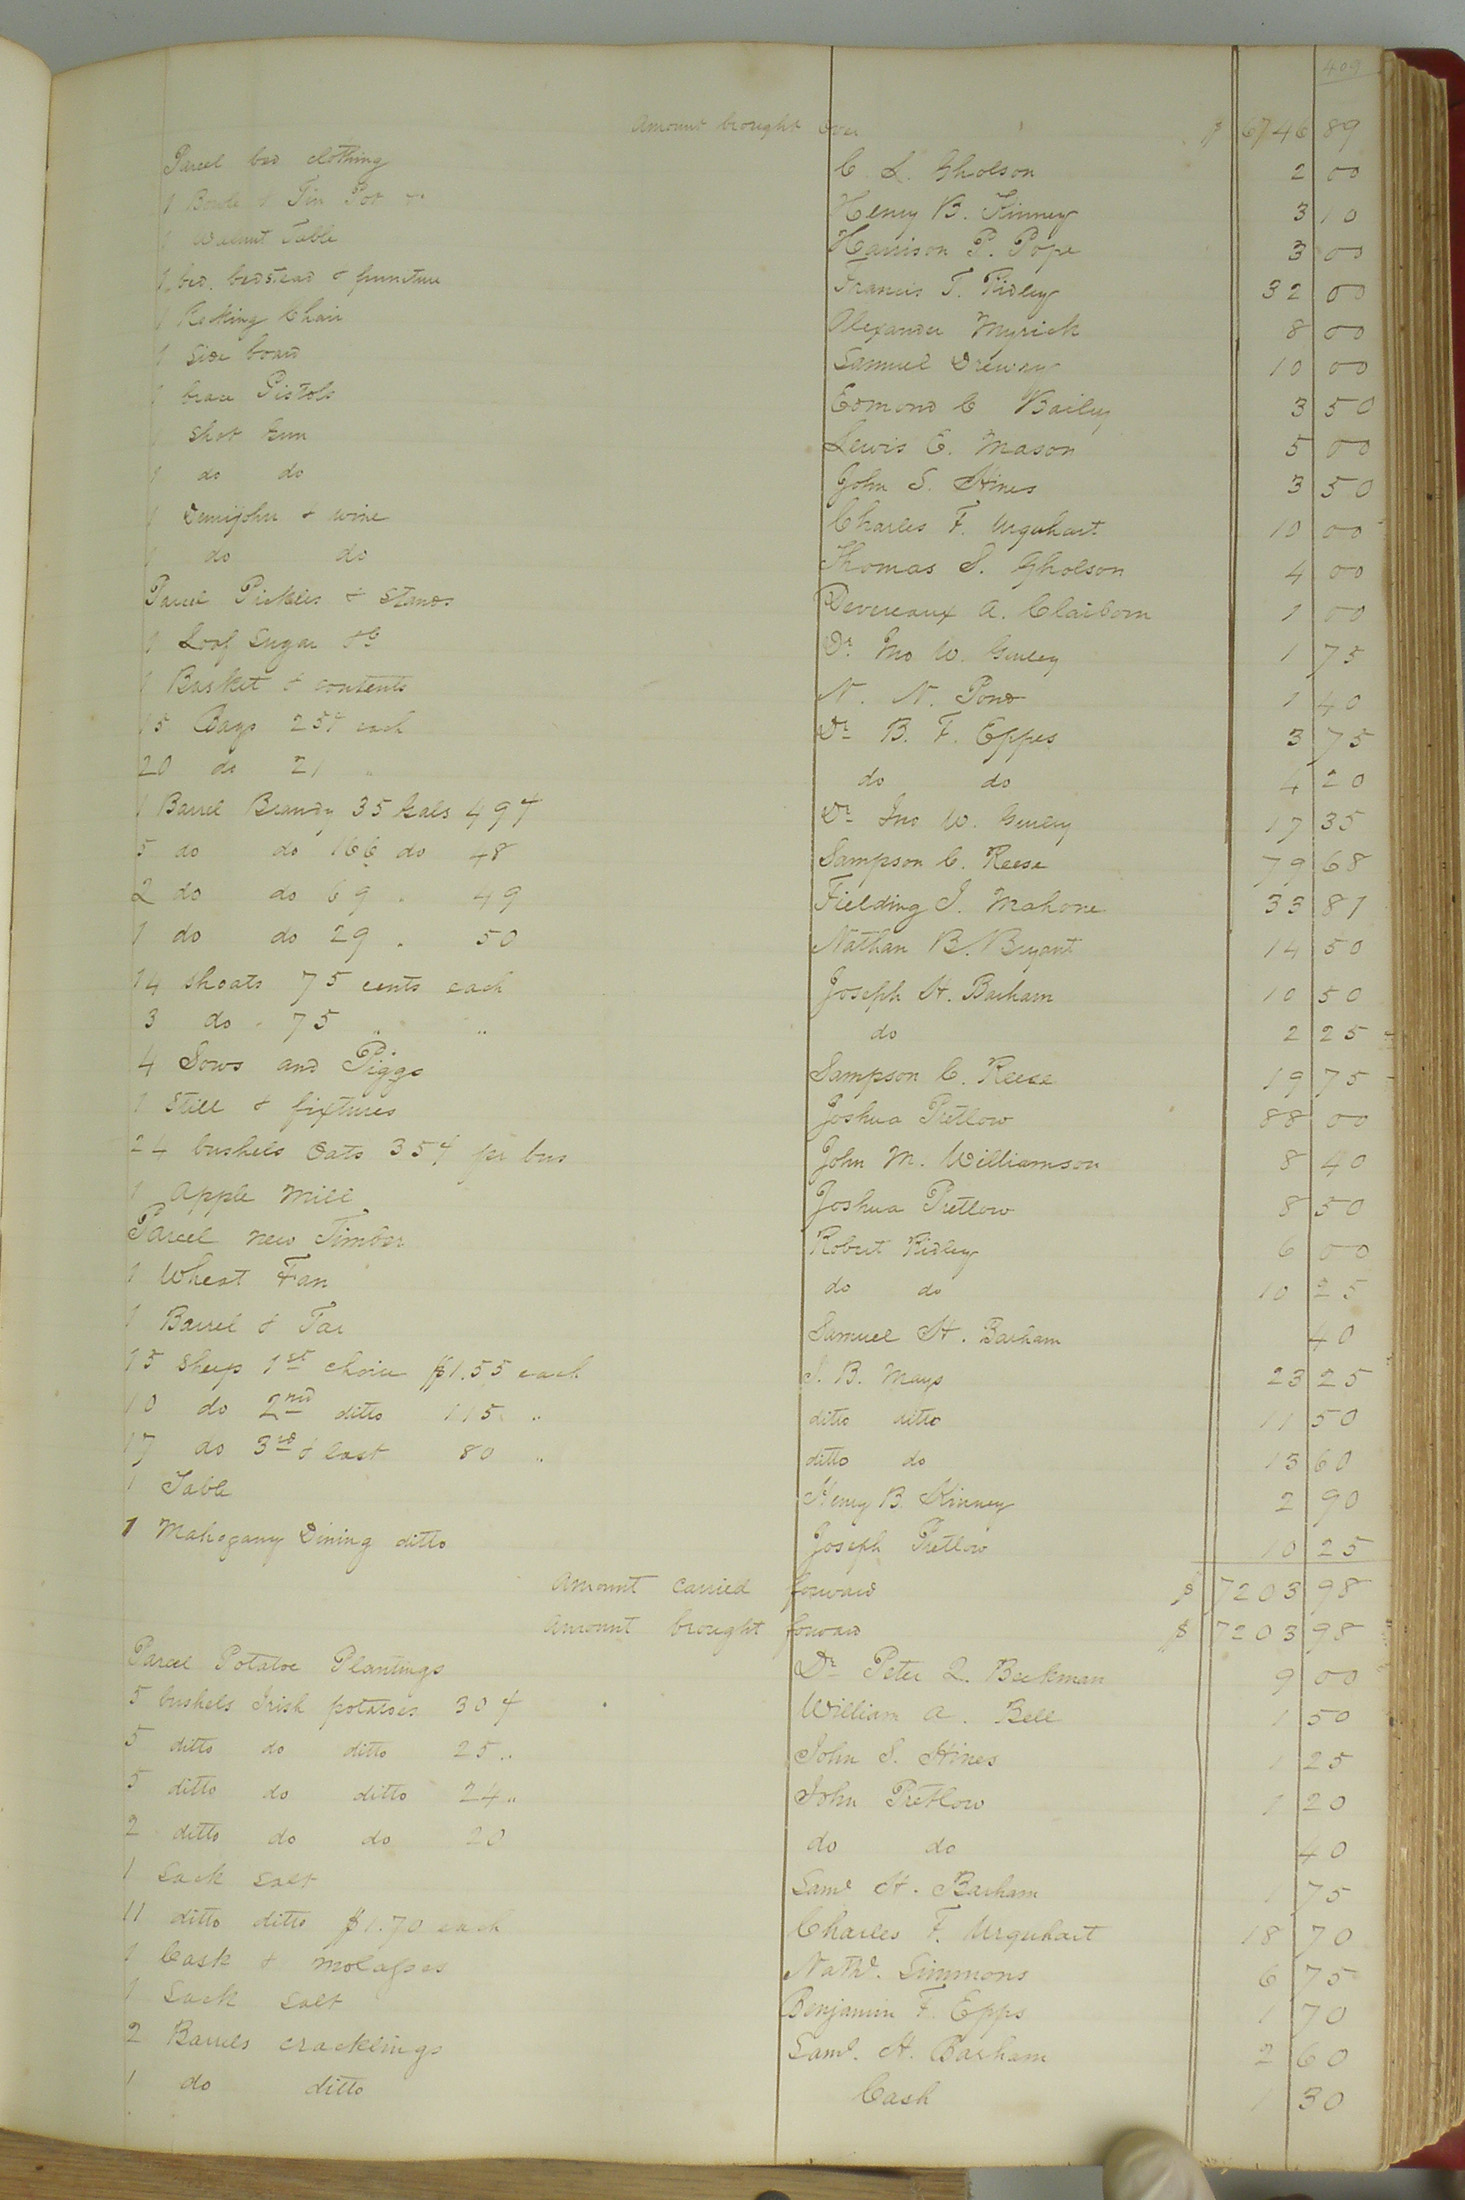 409
Amount brought over $ 6746 89
Parcel bed clothing C. L. Gholson 2 00
1 Bowl & Tin Pot Henry B. Kinney 3 10
1 Walnut Table Harrison P. Pope 3 00
1 bed, bedstead & furniture Francis T. Ridley 32 00
1 Rocking Chair Alexander Myrick 8 00
1 Side board Samuel Drewry 10 00
1 brace Pistols Edmond C Bailey 3 50
1 Shot Gun Lewis E. Mason 5 00
1 do do John S. Hines 3 50
1 Demijohn & wine Charles F. Urquhart 10 00
1 do do Thomas S. Gholson 4 00
Parcel Pickles & Stands Devereaux A. Claiborn 1 00
1 Loaf Sugar &c Dr. Jno W. Gurley 1 75
1 Basket & contents N. N. Pond 1 40
15 Bags 25¢ each Dr B. F. Eppes 3 75
20 do 21 " do do 4 20
1 Barrel Brandy 35 Gals 49¢ Dr Jno W. Gurley 17 35
5 do do 166 do 48 Sampson C. Reese 79 68
2 do do 69 " 49 Fielding J. Mahone 33 81
1 do do 29 " 50 Nathan B. Bryant 14 50
14 Shoats 75 cents each Joseph H. Barham 10 50
3 do 75 " " do 2 25
4 Sows and Piggs Sampson C. Reese 19 75
1 Still & fixtures Joshua Pretlow 88 00
24 bushels Oats 35¢ pr bus John M. Williamson 8 40
1 Apple Mill Joshua Pretlow 8 50
Parcel new Timber Robert Ridley 6 00
1 Wheat Fan do do 10 25
1 Barrel & Tar Samuel H. Barham 40
15 Sheep 1st choice $1.55 each J. B. Mays 23 25
10 do 2nd ditto 115 " ditto ditto 11 50
17 do 3rd & last 80 " ditto do 13 60
1 Table Henry B. Kinney 2 90
1 Mahogany Dining ditto Joseph Pretlow 10 25
Amount carried forward $ 7203 98
Amount brought forward $ 7203 98
Parcel Potatoe Plantings Dr Peter Z. Beekman 9 00
5 bushels Irish potatoes 30¢ William A. Bell 1 50
5 ditto do ditto 25 " John S. Hines 1 25
5 ditto do ditto 24 " John Pretlow 1 20
2 ditto do do 20 do do 40
1 Sack Salt Saml H. Barham 1 75
11 ditto ditto $1.70 each Charles F. Urquhart 18 70
1 Cask & molasses Nathl. Simmons 6 75
1 Sack Salt Benjamin F. Epps 1 70
2 Barrels cracklings Saml. H. Barham 2 60
1 do ditto Cash 1 30